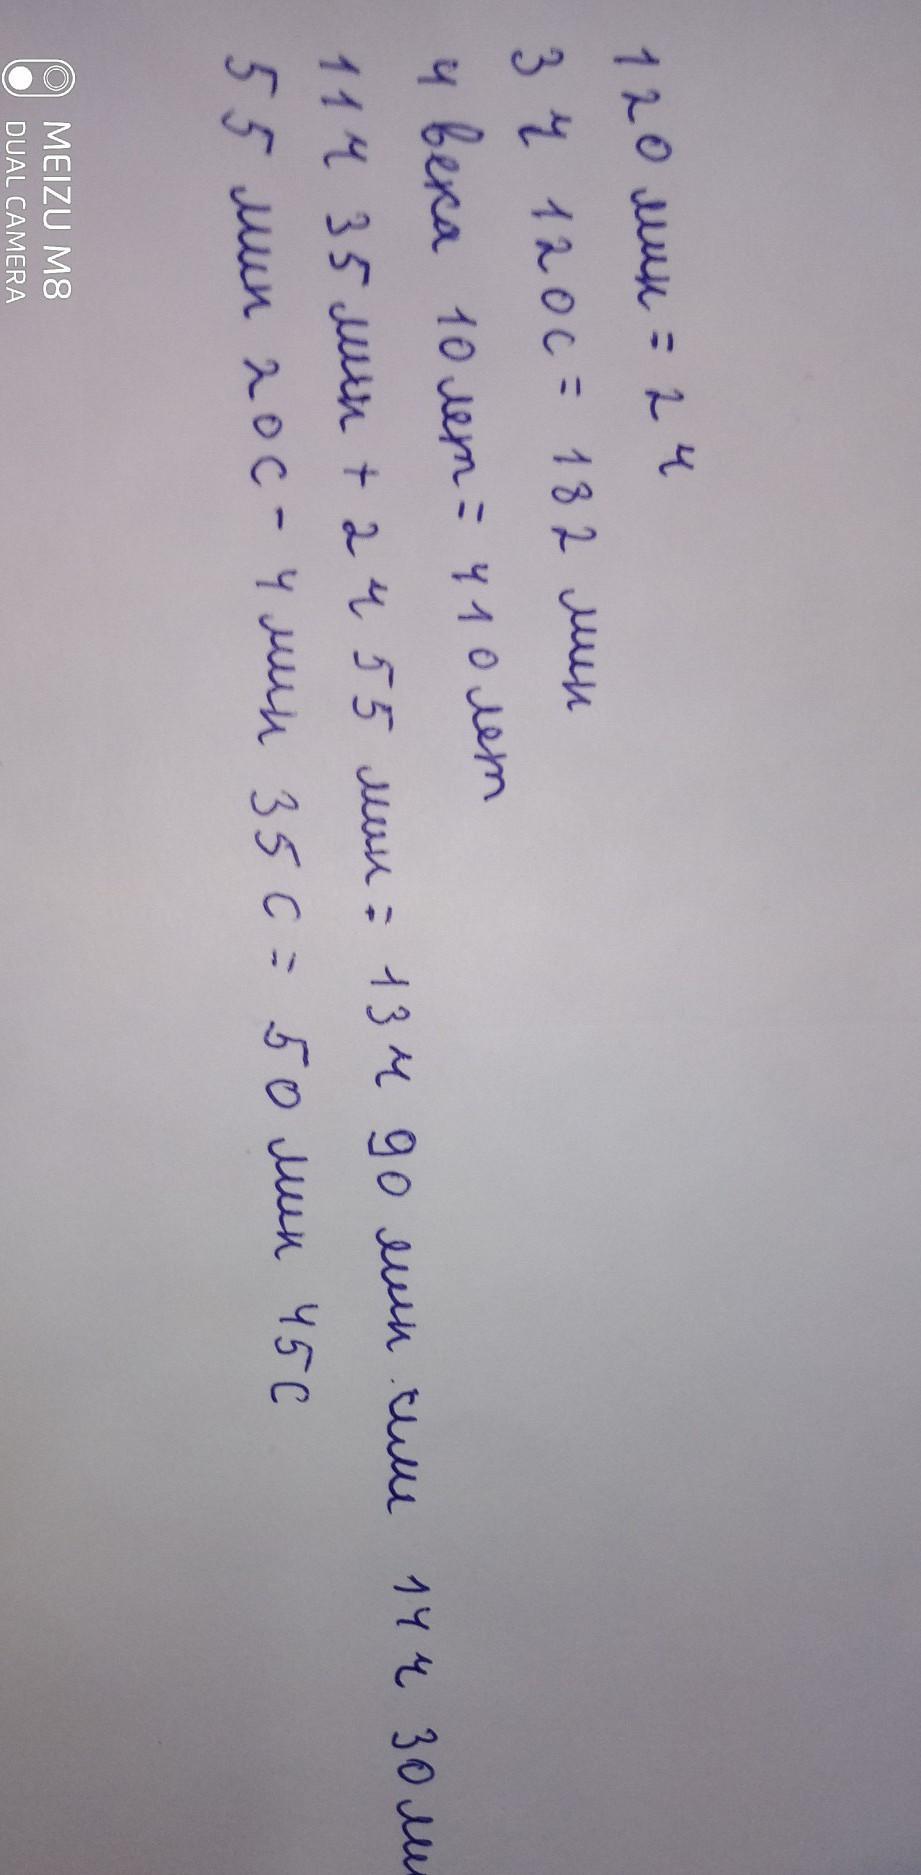 120 мин = 2 ч
3 ч 120с = 182 мин
4 века 10 лет = 410 лет
11ч 35мин + 2 ч 55 мин = 13 ч 90 мин или 14 ч 30 ми
55 мин 20с - 4 мин 35с = 50 мин 45с
MEIZU M8
DUAL CAMERA